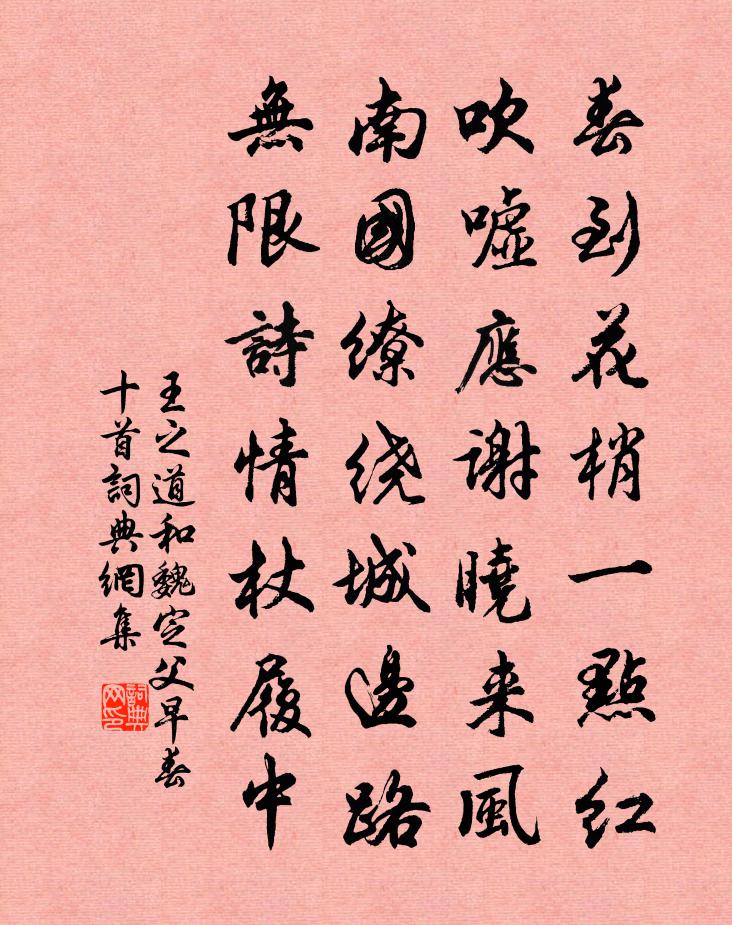 春到花梢一點红
吹噓應謝曉来風
南國繚绕城邊路
無限詩情杖履中
王之道和魏定父早春
十首詞典網集
詞典网印